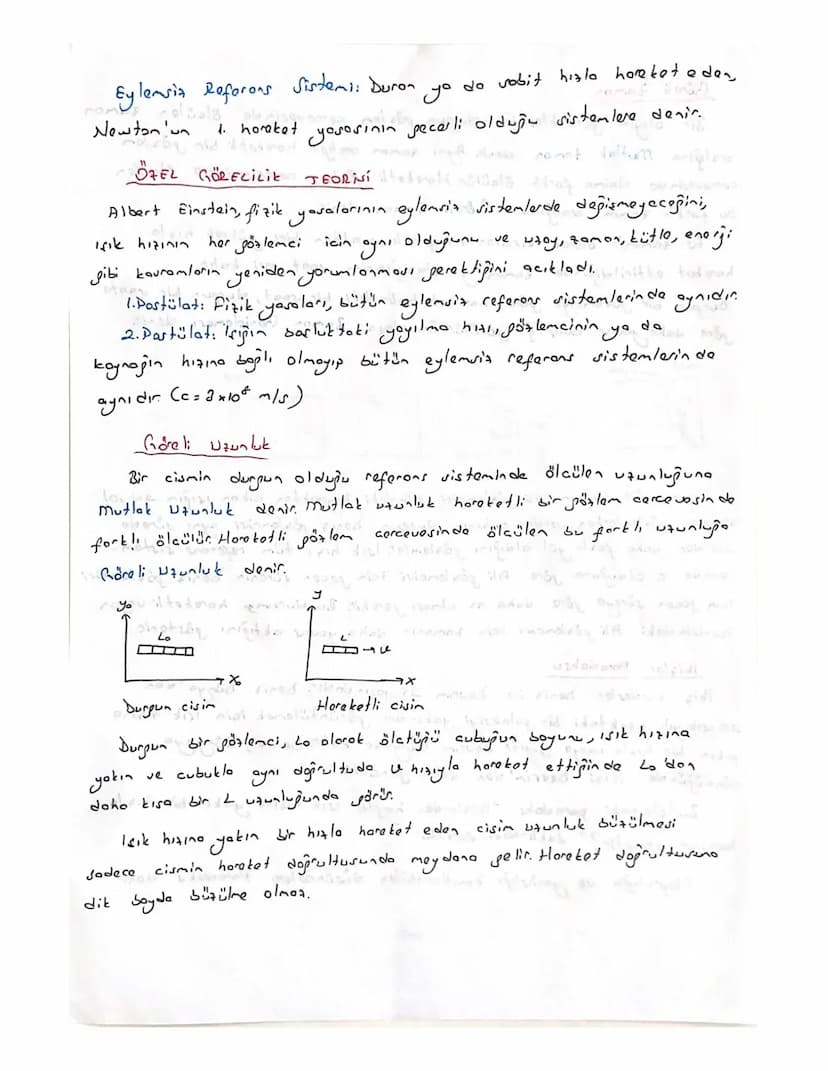 Eylemsiz Referans Sistemi: Duran ya da sabit hızla hareket eden,
Newton'un 1. hareket yasasının geçerli olduğu sistemlere denir.
ÖZEL GÖRELİLİK TEORİSİ
Albert Einstein, fizik yasalarının eylemsiz sistemlerde değişmeyeceğini,
ışık hızının her gözlemci için aynı olduğunu ve uzay, zaman, kütle, enerji
gibi kavramların yeniden yorumlanması gerektiğini açıkladı.
1.Postülat: Fizik yasaları, bütün eylemsiz referans sistemlerinde aynıdır.
2.Postülat: Işığın boşluktaki yayılma hızı, gözlemcinin ya da
kaynağın hızına bağlı olmayıp bütün eylemsiz referans sistemlerinde
aynıdır. (c = 3x10⁸ m/s)
Göreli Uzunluk
Bir cismin durgun olduğu referans sisteminde ölçülen uzunluğuna
Mutlak Uzunluk denir. Mutlak uzunluk hareketli bir gözlem çerçevesinde
farklı ölçülür. Hareketli gözlem çerçevesinde ölçülen bu farklı uzunluğa
Göreli Uzunluk denir.
y₀ y
L₀ L → v
x₀ x
Durgun cisim Hareketli cisim
Durgun bir gözlenci, L₀ olarak ölçtüğü çubuğun boyunu, ışık hızına
yakın ve çubukla aynı doğrultuda v hızıyla hareket ettiğinde L₀'dan
daha kısa bir L uzunluğunda görür.
Işık hızına yakın bir hızla hareket eden cisim uzunluk büzülmesi
sadece cismin hareket doğrultusunda meydana gelir. Hareket doğrultusuna
dik boyda büzülme olmaz.